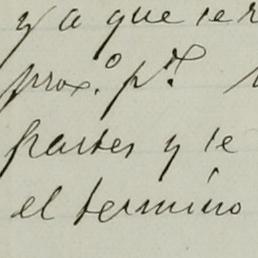 y a que se
prox.º p.
partes y se
el termino